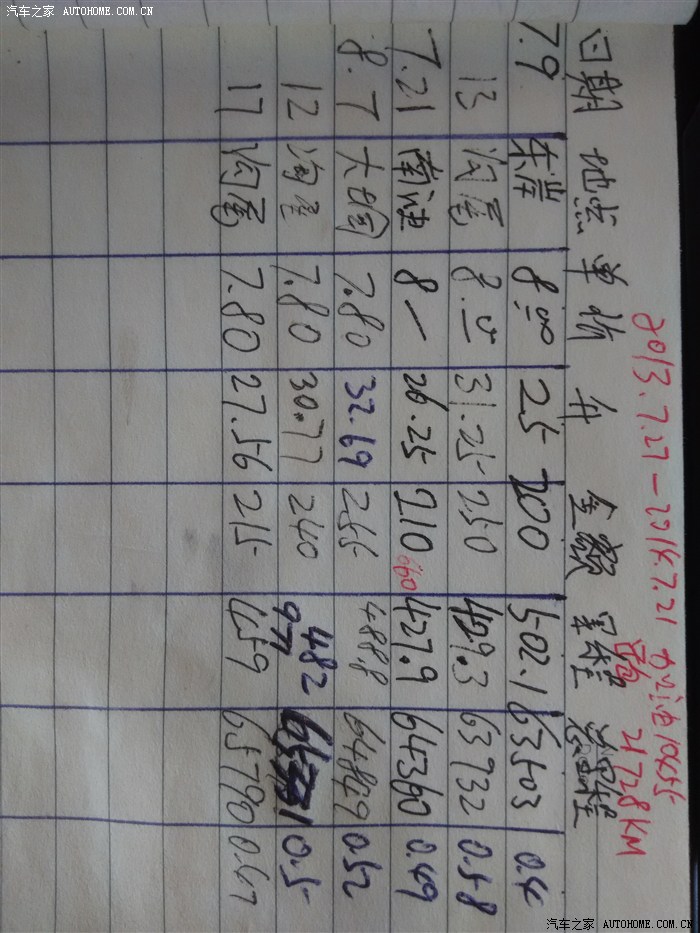 汽车之家 AUTOHOME.COM.CN
2013.7.27—2014.7.21 加油10655
跑 21728KM
日期 地点 单价 升 金额 里程 总里程
7.9 8.00 25 200 502.1 63503 0.4
13 汾尾 8.00 31.25 250 429.3 63932 0.58
7.21 8— 26.25 210 660 427.9 64360 0.49
8.7 7.80 32.69 255 488.8 64849 0.52
12 汾尾 7.80 30.77 240 482 0.5
977
17 汾尾 7.80 27.56 215 459 65790 0.47
汽车之家 AUTOHOME.COM.CN